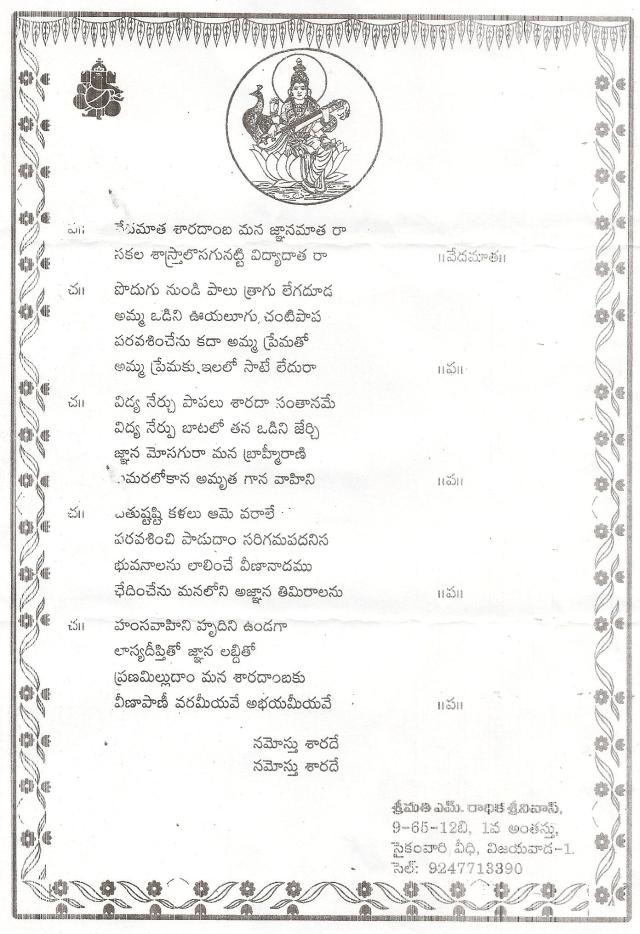 ప॥ వేదమాత శారదాంబ మన జ్ఞానమాత రా
సకల శాస్త్రాలొసగునట్టి విద్యాదాత రా ॥వేదమాత॥
చ॥ పొదుగు నుండి పాలు త్రాగు లేగదూడ
అమ్మ ఒడిని ఊయలూగు చంటిపాప
పరవశించేను కదా అమ్మ ప్రేమతో
అమ్మ ప్రేమకు ఇలలో సాటే లేదురా ॥ప॥
చ॥ విద్య నేర్చు పాపలు శారదా సంతానమే
విద్య నేర్పు బాటలో తన ఒడిని జేర్చి
జ్ఞాన మోసగురా మన బ్రాహ్మీరాణి
అమరలోకాన అమృత గాన వాహిని ॥ప॥
చ॥ చతుష్టష్టి కళలు ఆమె వరాలే
పరవశించి పాడుదాం సరిగమపదనిస
భువనాలను లాలించే వీణానాదము
ఛేదించేను మనలోని అజ్ఞాన తిమిరాలను ॥ప॥
చ॥ హంసవాహిని హృదిని ఉండగా
లాస్యదీప్తితో జ్ఞాన లబ్దితో
ప్రణమిల్లుదాం మన శారదాంబకు
వీణాపాణీ వరమీయవే అభయమీయవే ॥ప॥
నమోస్తు శారదే
నమోస్తు శారదే
శ్రీమతి ఎమ్. రాధిక శ్రీనివాస్,
9-65-12బి, 1వ అంతస్తు,
సైకంవారి వీధి, విజయవాడ-1.
సెల్: 9247713390